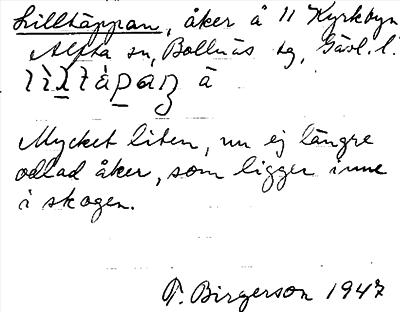 Lilltäppan, åker å 11 Kyrkbyn
Alfta sn, Bollnäs tg, Gävl. l.
å
Mycket liten, nu ej längre
odlad åker, som ligger inne
i skogen.
T. Birgerson 1947